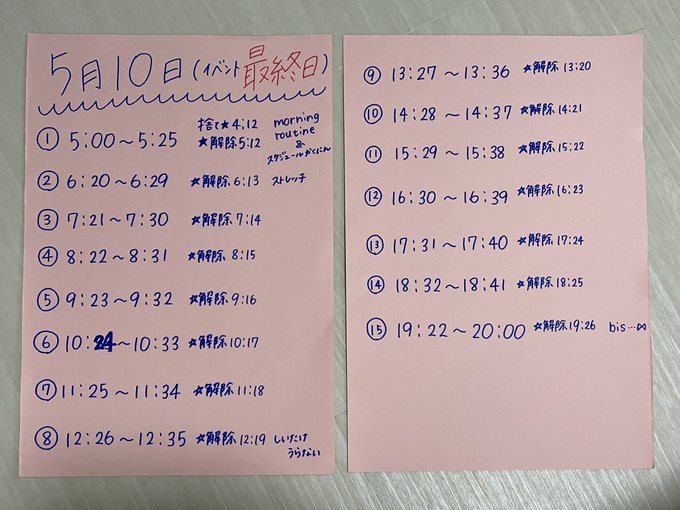 5月10日(イベント最終日)
① 5:00～5:25 捨て★4:12 ★解除5:12 morning routine & スケジュールかくにん
② 6:20～6:29 ★解除6:13 ストレッチ
③ 7:21～7:30 ★解除7:14
④ 8:22～8:31 ★解除8:15
⑤ 9:23～9:32 ★解除9:16
⑥ 10:24～10:33 ★解除10:17
⑦ 11:25～11:34 ★解除11:18
⑧ 12:26～12:35 ★解除12:19 しいたけうらない
⑨ 13:27～13:36 ★解除13:20
⑩ 14:28～14:37 ★解除14:21
⑪ 15:29～15:38 ★解除15:22
⑫ 16:30～16:39 ★解除16:23
⑬ 17:31～17:40 ★解除17:24
⑭ 18:32～18:41 ★解除18:25
⑮ 19:22～20:00 ★解除19:26 bis…⋈